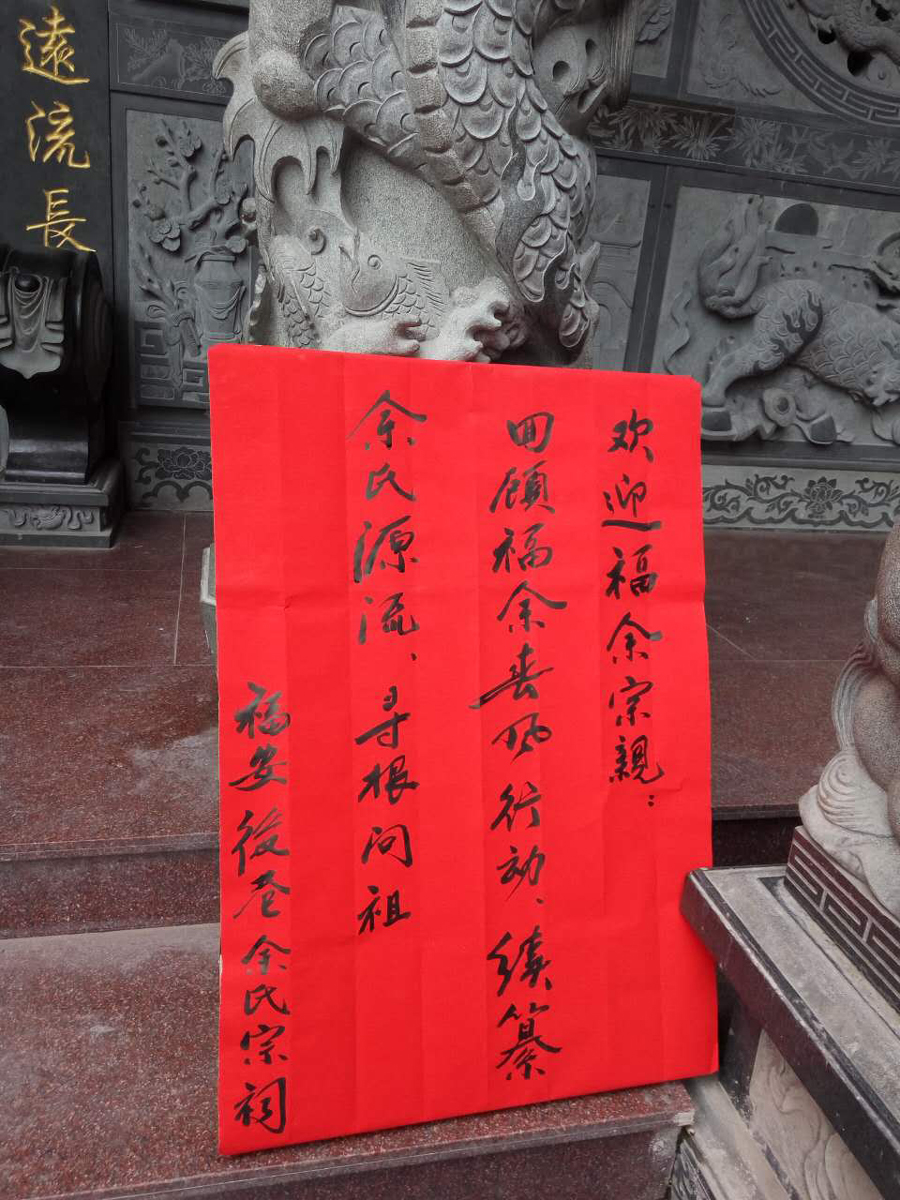 欢迎福余宗親：
回顧福余春风行动、續纂
余氏源流、寻根问祖
福安後巷余氏宗祠
遠流長